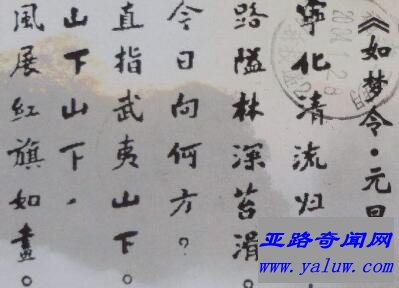 《如梦令·元旦
寧化清流归
路隘林深苔滑。
今日向何方？
直指武夷山下。
山下山下，
風展红旗如畫。
亚路奇闻网
www.yaluw.com